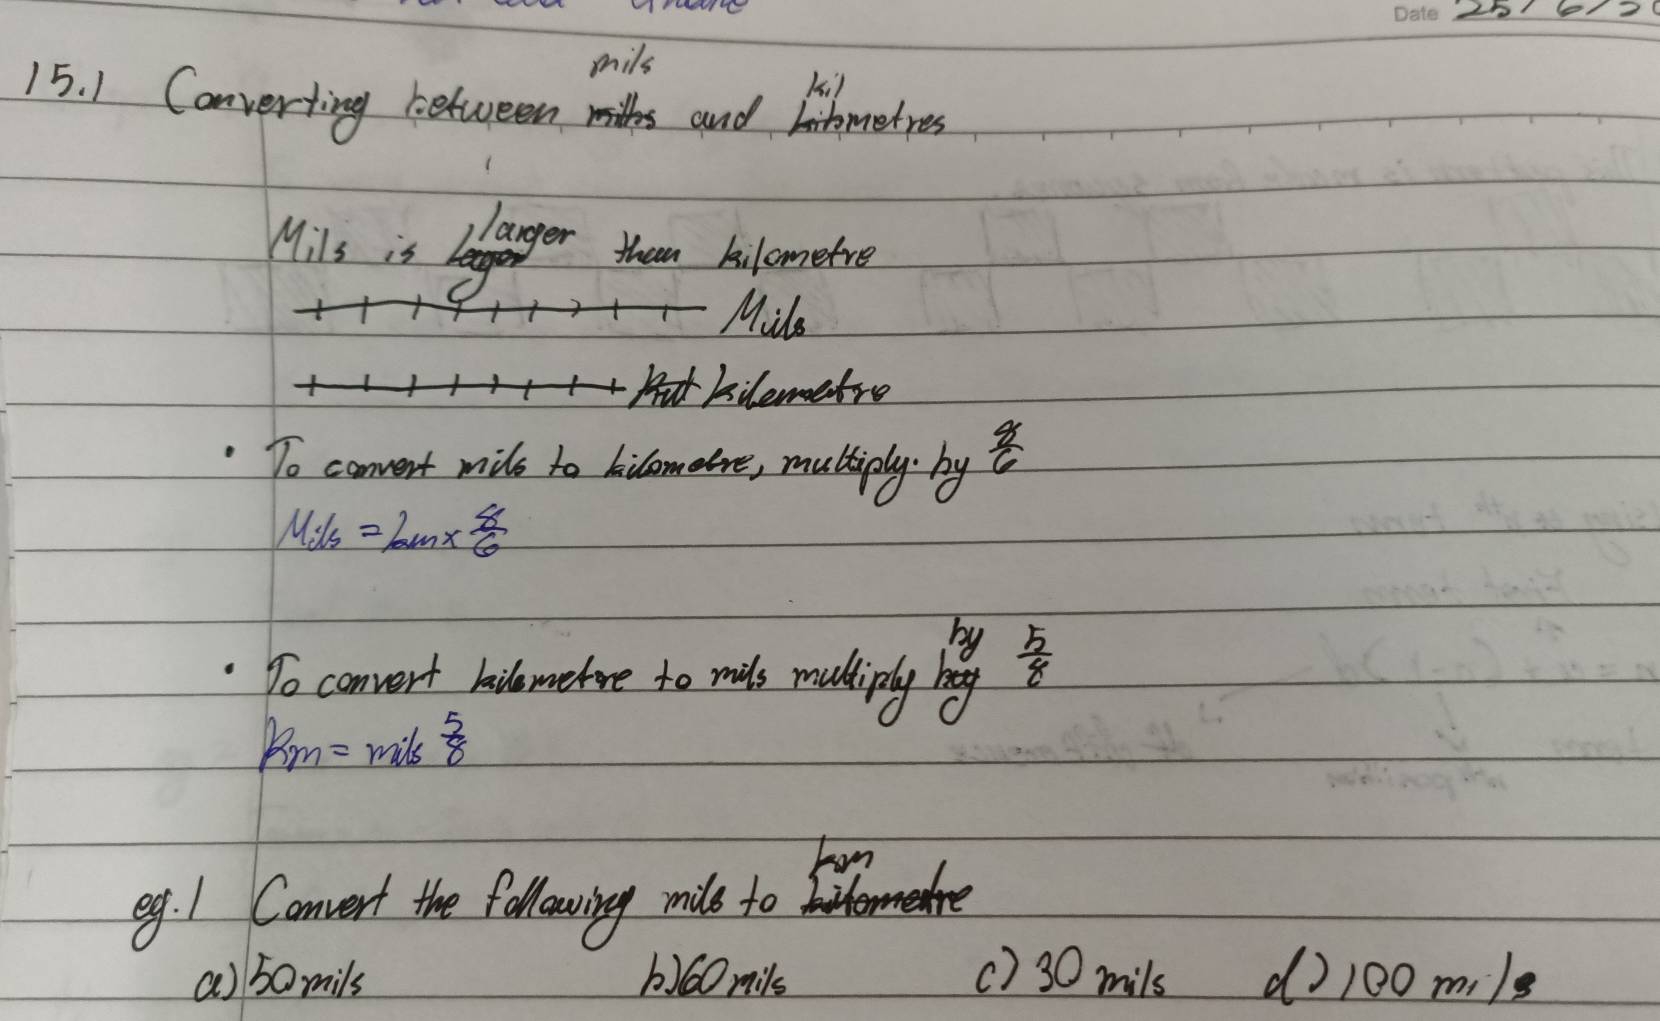 Date 25/6/20
15.1 Converting between mils and kilometres
Mils is larger than kilometre
Mils
kilometre
• To convert mils to kilometre, multiply. by 8/6
Mils = km x 8/6
• To convert kilometre to mils multiply by 5/8
Km = mils 5/8
eg.1 Convert the following mils to km
a) 50 mils b) 60 mils c) 30 mils d) 100 mils